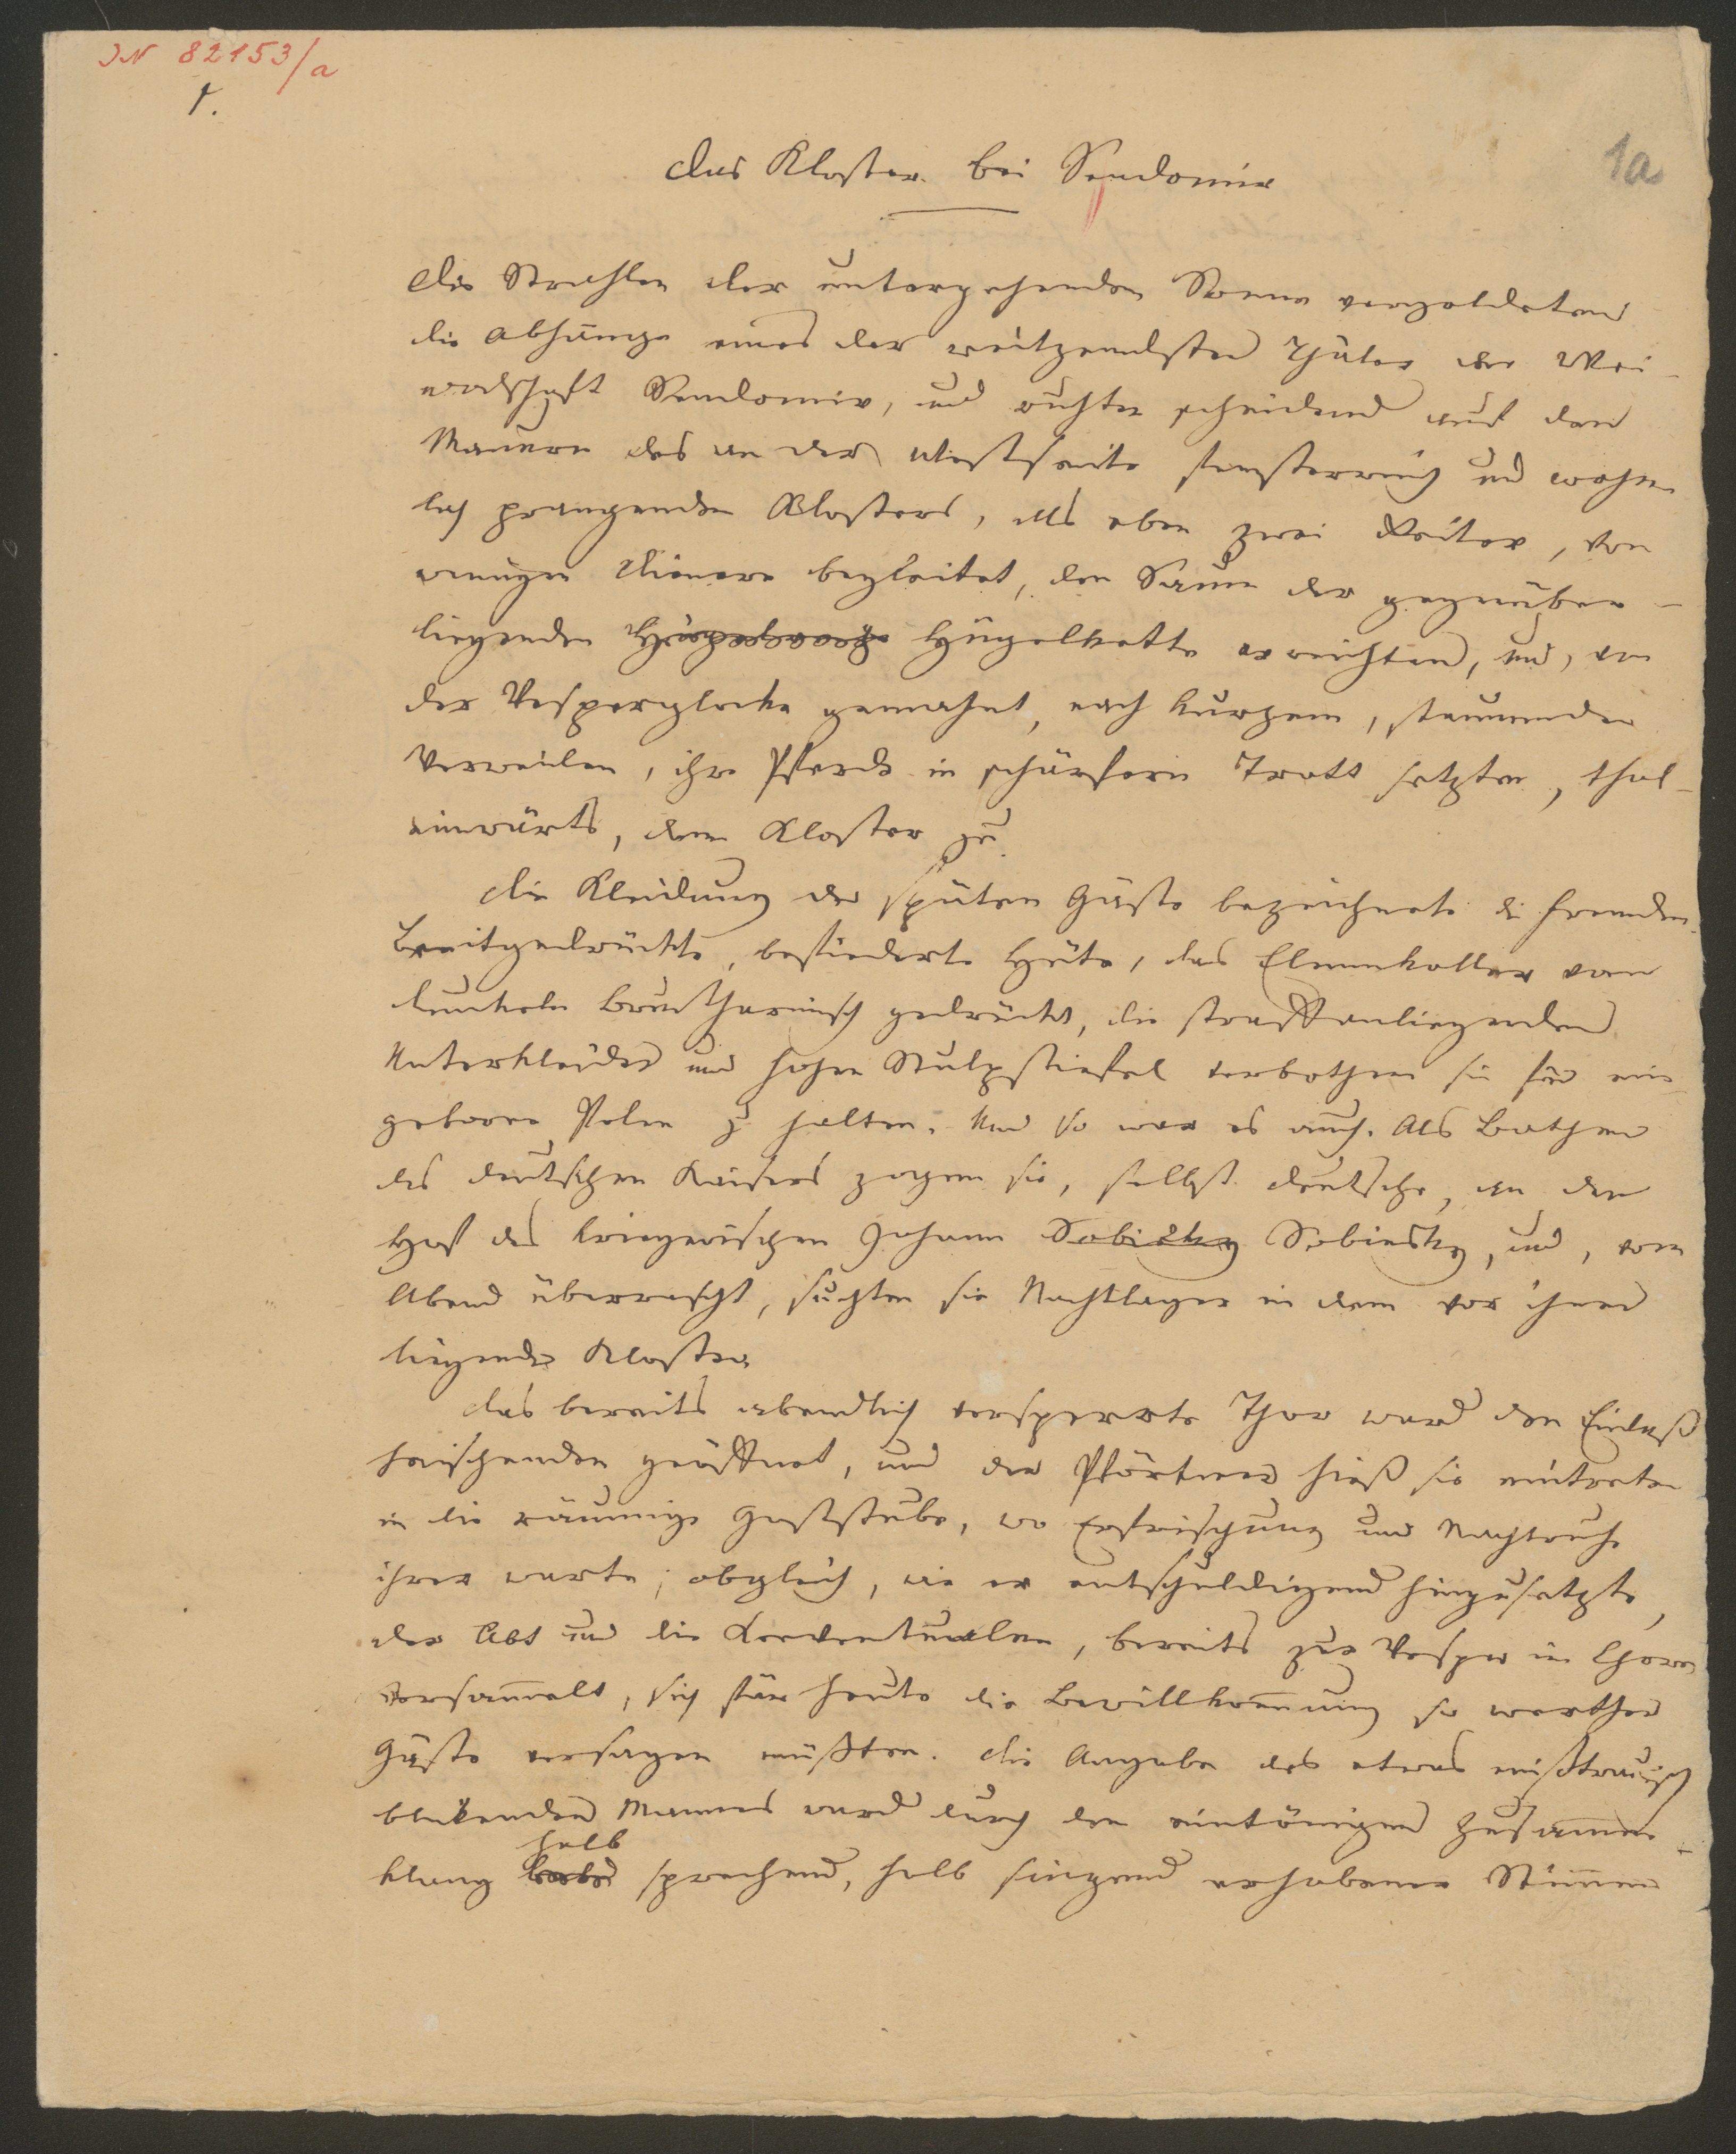 IN 82153/a
1.
1a
Das Kloster bei Sendomir
Die Strahlen der untergehenden Sonne vergoldeten
die Abhänge eines der reitzendsten Thäler der Woi-
wodschaft Sendomir, und ruhten scheidend auf den
Mauern des an der Westseite fensterreich und wohn
lich prangenden Klosters, als eben zwei Reiter, von
wenigen Dienern begleitet, den Saum der gegenüber-
liegenden Hügelkette erreichten, und, von
der Vesperglocke gemahnt, nach kurzem, staunenden
Verweilen, ihre Pferde in schärfern Trott setzten, thal-
einwärts, dem Kloster zu.
Die Kleidung der späten Gäste bezeichnete die Fremden.
Breitgedrückte, befiederte Hüte, das Elennkoller vom
dunkeln Brustharnisch gedrückt, die straffanliegenden
Unterkleider und hohen Stulpstiefel verbothen sie für ein-
geborne Polen zu halten. Und so war es auch. Als Bothen
des deutschen Kaisers zogen sie, selbst Deutsche, an den
Hof des kriegerischen Johann Sobizky Sobiesky, und, vom
Abend überrascht, suchten sie Nachtlager in dem vor ihnen
liegenden Kloster
Das bereits abendlich versperrte Thor ward den Einlaß
heischenden geöffnet, und der Pförtner hieß sie eintreten
in die räumige Gaststube, wo Erfrischung und Nachtruhe
ihrer warte; obgleich, wie er entschuldigend hinzusetzte,
der Abt und die Konventualen, bereits zur Vesper im Chore
versammelt, sich für heute die Bewillkommung so werther
Gäste versagen müßten. Die Angabe des etwas mißtrauisch
blickenden Mannes ward durch den eintönigen Zusammen-
halb
klang sprechend, halb singend erhobener Stimmen